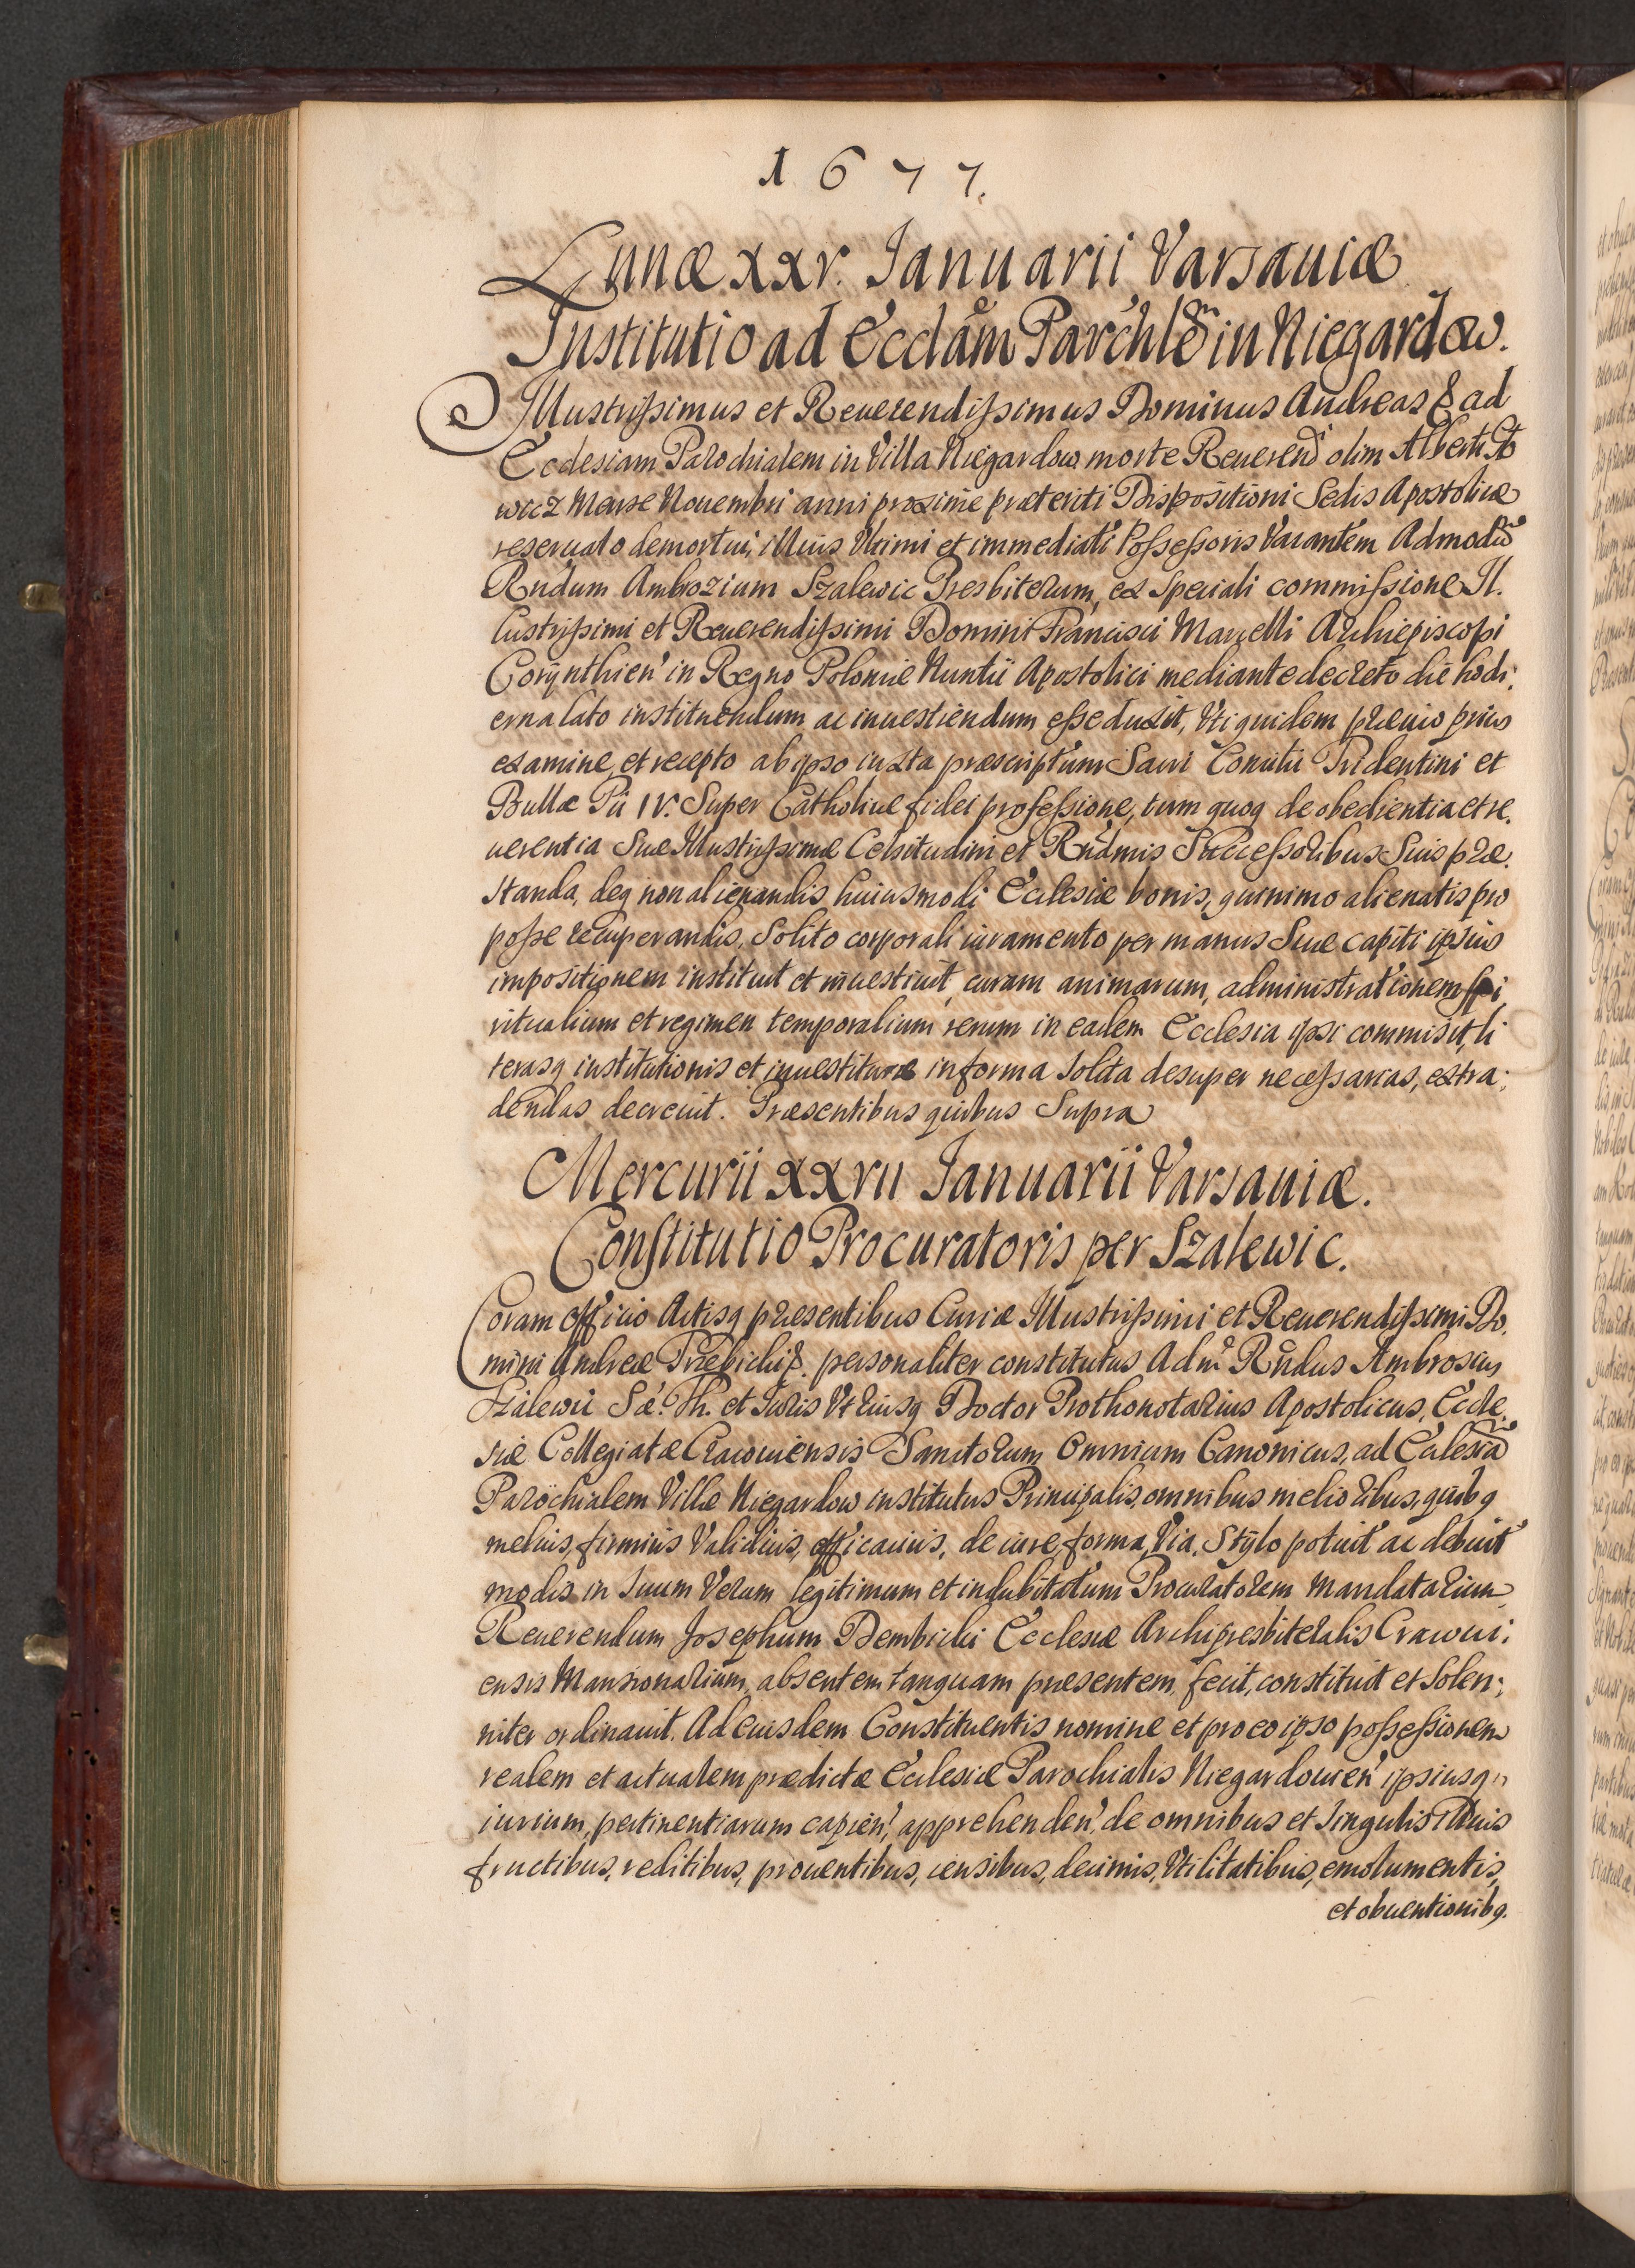 1677.
Lunæ xxv. Ianuarii Varsauiæ
Institutio ad Ecclãm Parchlẽm in Niegardow.
Illustrissimus et Reuerendissimus Dominus Andreas & ad
Ecclesiam Parochialem in Villa Niegardow morte Reuerendi olim Alberti
wicz Mense Nouembri anni proxime præteriti Dispositioni Sedis Apostolicæ
reseruato demortui, illius Vltimi et immediati Possessoris Vacantem Admodũ
Rndum Ambrozium Szalewic Presbiterum, ex speciali commissione Il.
lustrissimi et Reuerendissimi Domini Francisci Martelli Archiepiscopi
Corynthien' in Regno Poloniæ Nuntii Apostolici mediante decreto die hodi:
erna lato instituendum ac inuestiendum esse duxit, Vti quidem præuio prius
examine, et recepto ab ipso iuxta præscriptum Sacri Concilii Tridentini et
Bullæ Pii IV. Super Catholicæ fidei professione, tum quoq de obedientia et re.
uerentia Suæ Illustrissimæ Celsitudini et Rndmis Successoribus Suis præ.
standa, deq non alienandis huiusmodi Ecclesiæ bonis, quinimo alienatis pro
posse recuperandis, Solito corporali iuramento per manus Suæ capiti ipsius
impositionem instituit et inuestiuit, curam animarum, administrationem spi
ritualium et regimen temporalium rerum in eadem Ecclesia ipsi commisit, li
terasq institutionis et inuestituræ in forma solita desuper necessarias, extra:
dendas decreuit. Præsentibus quibus Supra
Mercurii xxvii Ianuarii Varsauiæ.
Constitutio Procuratoris per Szalewic.
Coram Officio Actisq præsentibus Curiæ Illustrissimi et Reuerendissimi Do.
mini Andreæ Trzebicki &. personaliter constitutus Adm Rndus Ambrosius
Szalewic Sæ. Th. et Iuris Vtriusq Doctor Prothonotarius Apostolicus, Eccle.
siæ Collegiatæ Cracouiensis Sanctorum Omnium Canonicus, ad Ecclesiã
Parochialem Villæ Niegardow institutus Principalis, omnibus melioribus, quibq
melius, firmius Validius, efficacius, de iure, forma, Via, Stylo potuit ac debuit
modis in suum Verum legitimum et indubitatum Procuratorem Mandatarium
Reuerendum Josephum Dembicki Ecclesiæ Archipresbiteralis Cracoui:
ensis Mansionarium, absentem tanquam præsentem, fecit, constituit et Solen:
niter ordinauit. Ad eiusdem Constituentis nomine et pro eo ipso possessionem
realem et actualem prædictæ Ecclesiæ Parochialis Niegardouien' ipsiusq
iurium, pertinentiarum capien', apprehenden', de omnibus et singulis illius
fructibus, reditibus, prouentibus, censibus, decimis, Vtilitatibus, emolumentis,
et obuentionibq.